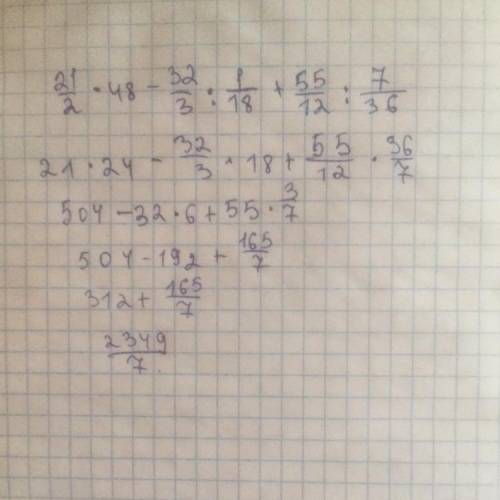 21/2 · 48 − 32/3 : 1/18 + 55/12 : 7/36
21 · 24 − 32/3 · 18 + 55/12 · 36/7
504 − 32 · 6 + 55 · 3/7
504 − 192 + 165/7
312 + 165/7
2349/7.